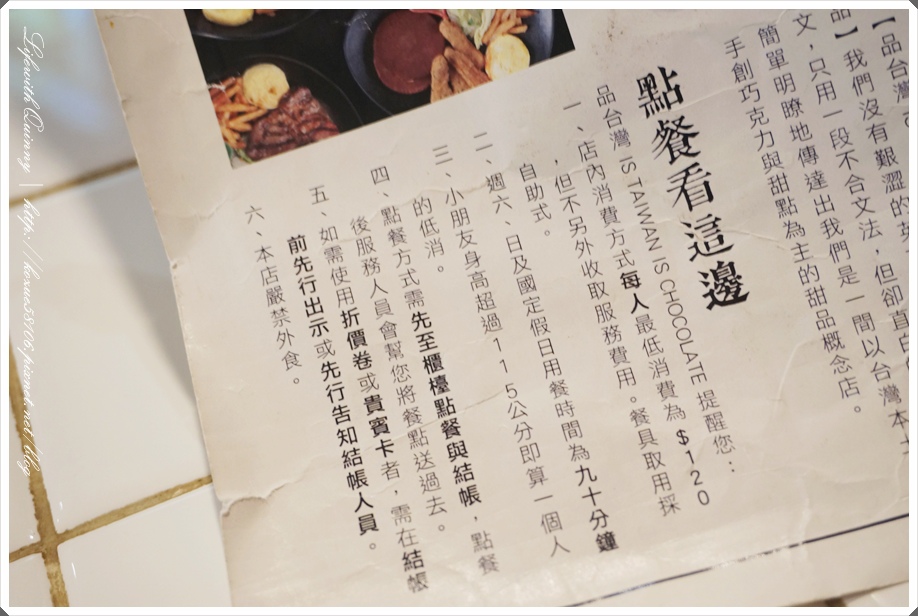 【品台灣
品】我們沒有艱澀的英
文，只用一段不合文法，但卻直白
簡單明瞭地傳達出我們是一間以台灣本土
手創巧克力與甜點為主的甜品概念店。
點餐看這邊
品台灣 IS TAIWAN IS CHOCOLATE 提醒您：
一、店內消費方式每人最低消費為$120
，但不另外收取服務費用。餐具取用採
自助式。
二、週六、日及國定假日用餐時間為九十分鐘
三、小朋友身高超過115公分即算一個人
的低消。
四、點餐方式需先至櫃檯點餐與結帳，點餐
後服務人員會幫您將餐點送過去。
五、如需使用折價卷或貴賓卡者，需在結帳
前先行出示或先行告知結帳人員。
六、本店嚴禁外食。
Lifewith Quinny | http://kexue58706.pixnet.net/blog